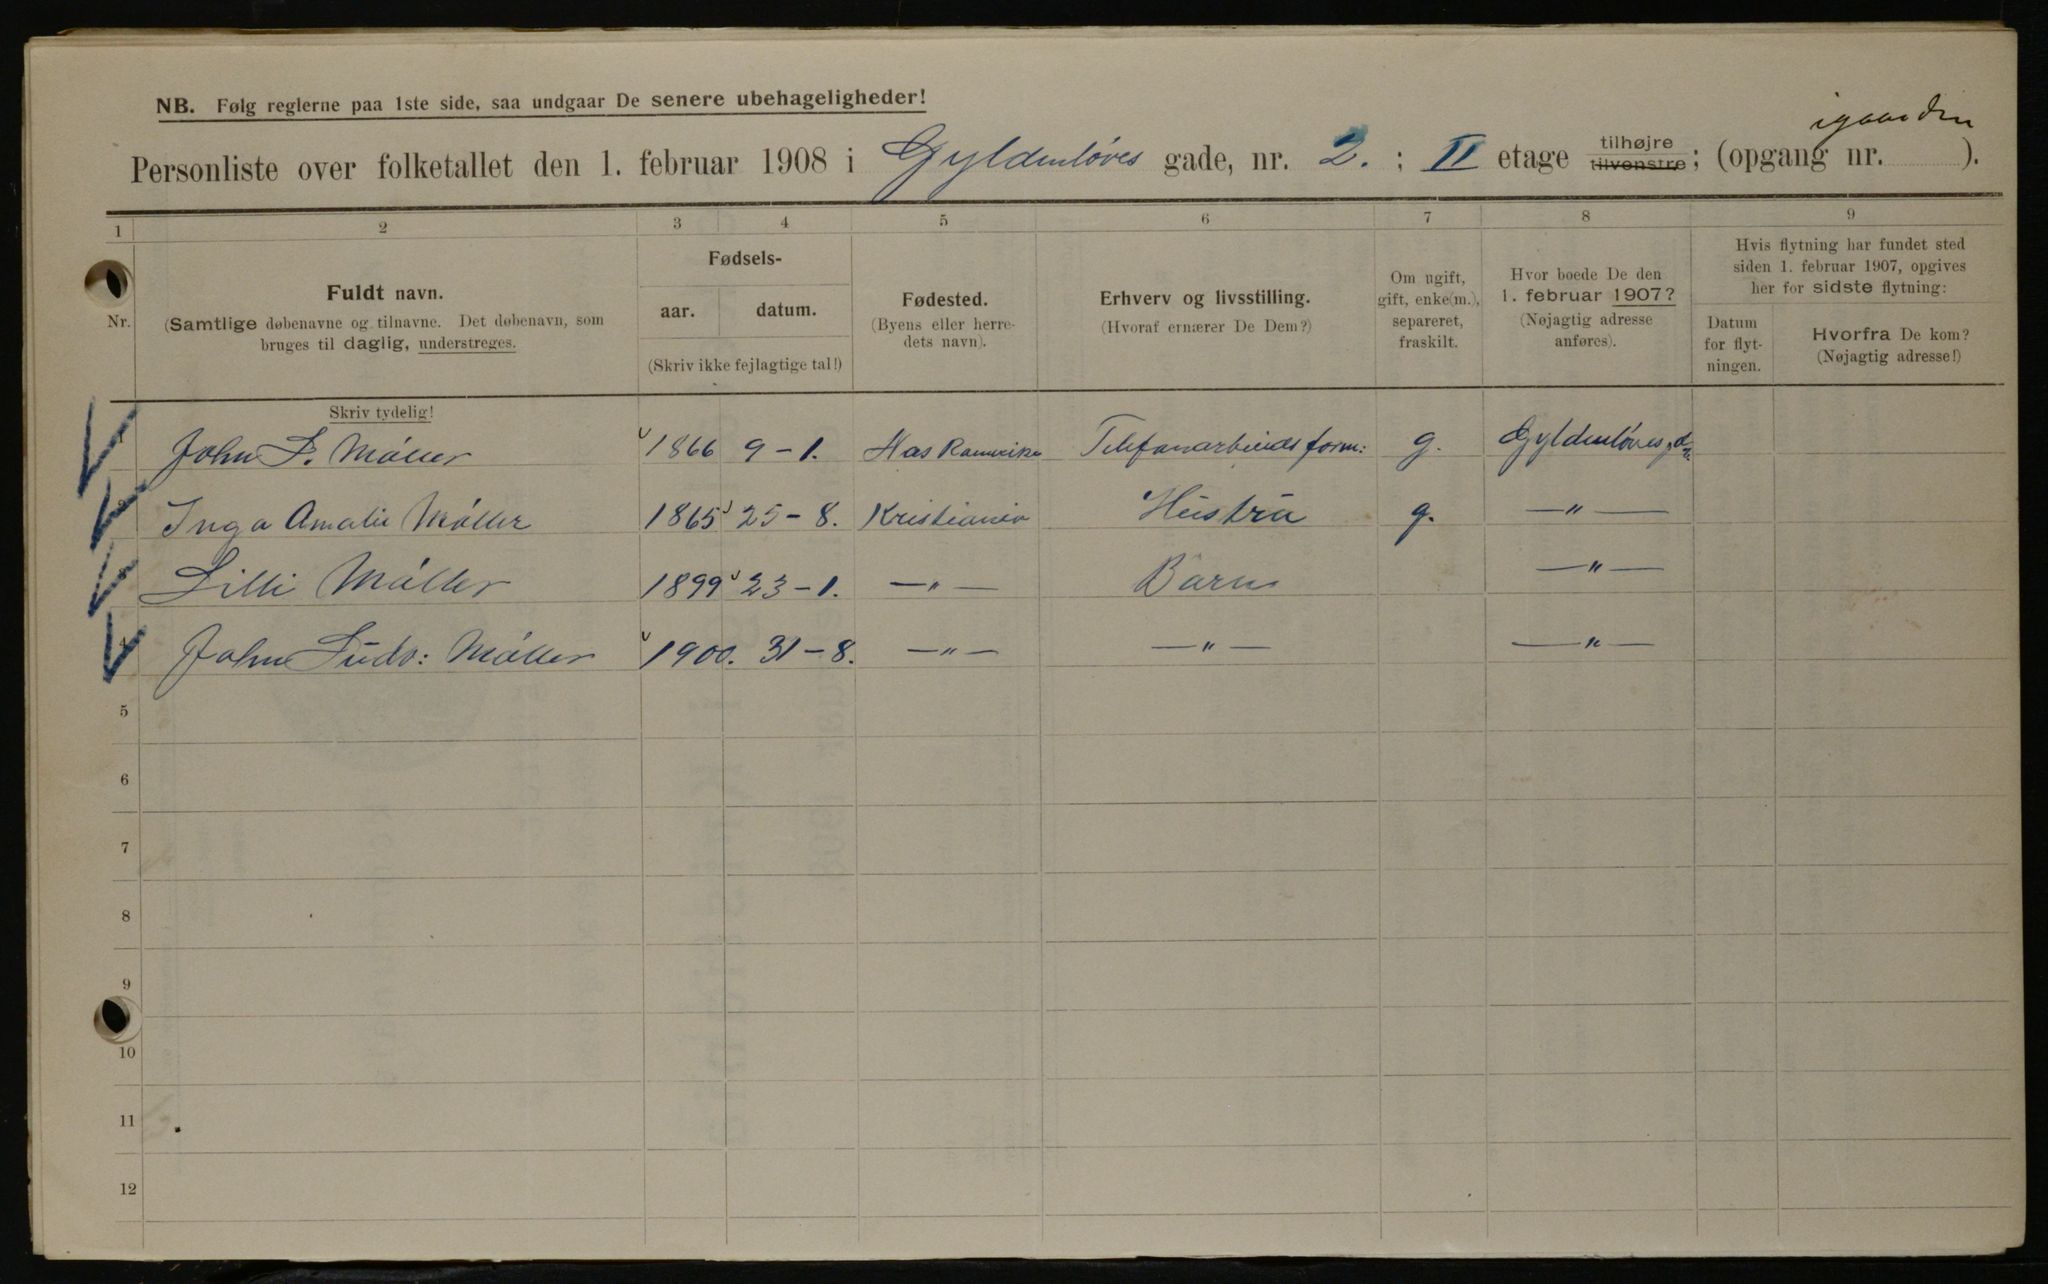 NB. Følg reglerne paa 1ste side, saa undgaar De senere ubehageligheder!
igaarden
Personliste over folketallet den 1. februar 1908 i Gyldenløves gade, nr. 2. ; II etage tilhøjre tilvenstre; (opgang nr. ).
1 2 3 4 5 6 7 8 9
Nr.
Fuldt navn.
(Samtlige døbenavne og tilnavne. Det døbenavn, som
bruges til daglig, understreges.
Fødsels-
aar. datum.
(Skriv ikke fejlagtige tal!)
Fødested.
(Byens eller herre-
dets navn).
Erhverv og livsstilling.
(Hvoraf ernærer De Dem?)
Om ugift,
gift, enke(m.),
separeret,
fraskilt.
Hvor boede De den
1. februar 1907?
(Nøjagtig adresse
anføres).
Hvis flytning har fundet sted
siden 1. februar 1907, opgives
her for sidste flytning:
Datum
for flyt-
ningen.
Hvorfra De kom?
(Nøjagtig adresse!)
Skriv tydelig!
John L. Møller 1866 9-1. g. Gyldenløvesgd
2 Inga Amalie Møller 1865 25-8. Kristiania Hustru g. —"—
3 Lilli Møller 1899 23-1. —"— Barn —"—
4 John Ludv: Møller 1900. 31-8. —"— —"— —"—
5
6
7
8
9
10
11
12